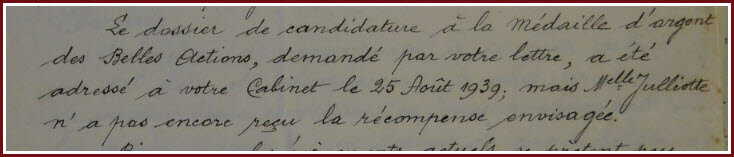 Le dossier de candidature à la Médaille d'argent
des Belles Actions, demandé par votre lettre, a été
adressé à votre Cabinet le 25 Août 1939; mais Melle Julliotte
n'a pas encore reçu la récompense envisagée.